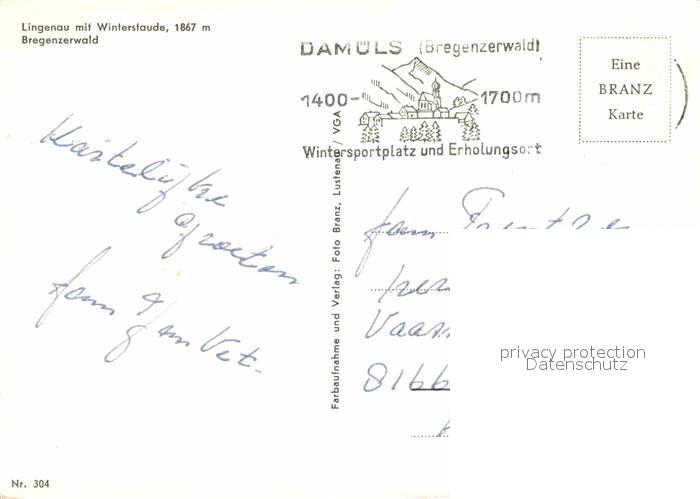 Lingenau mit Winterstaude, 1867 m
Bregenzerwald
DAMÜLS (Bregenzerwald)
1400- 1700m
Wintersportplatz und Erholungsort
Eine
BRANZ
Karte
Hartelijke
groeten
fam
Farbaufnahme und Verlag: Foto Branz, Lustenau / VGA
fam
Vaass
8166
privacy protection
Datenschutz
Nr. 304